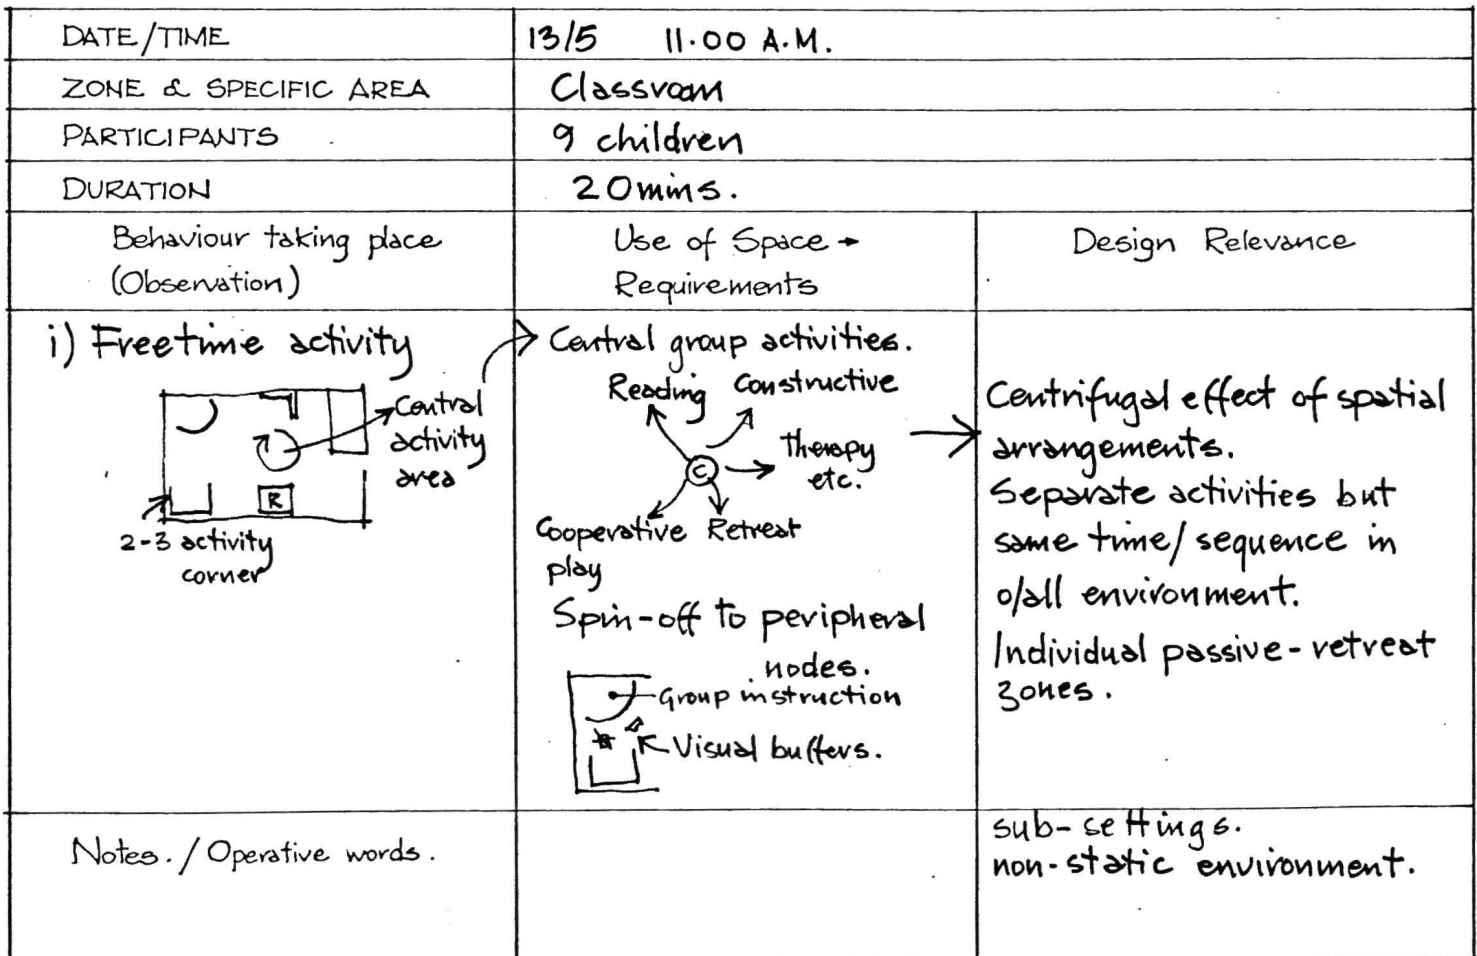 DATE/TIME
13/5 11.00 A.M.
ZONE & SPECIFIC AREA
Classroom
PARTICIPANTS
9 children
DURATION
20mins.
Behaviour taking place
(Observation)
Use of Space →
Requirements
Design Relevance
i) Freetime activity
Central
activity
area
R
2-3 activity
corner
Central group activities.
Reading
Constructive
Therapy
etc.
C
Cooperative
play
Retreat
Spin-off to peripheral
nodes.
Group instruction
Visual buffers.
Centrifugal effect of spatial
arrangements.
Separate activities but
same time/sequence in
o/all environment.
Individual passive-retreat
zones.
Notes./Operative words.
sub-settings.
non-static environment.